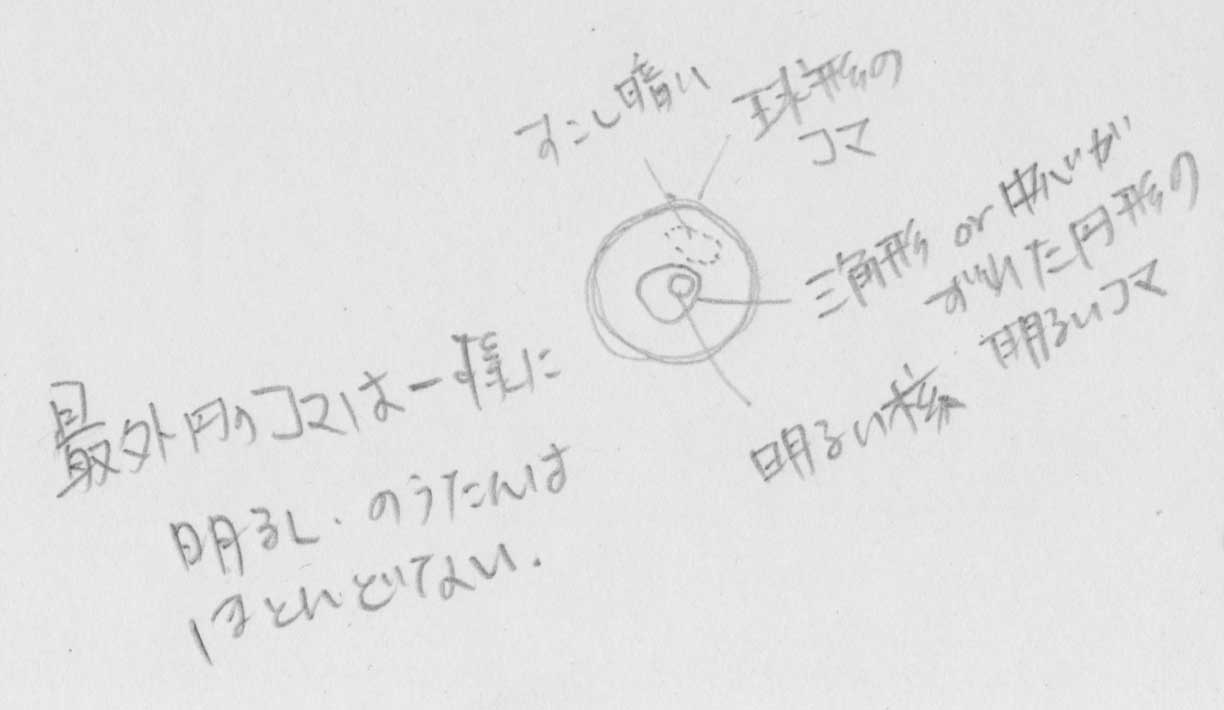 すこし暗い
球形の
コマ
三角形 or 中心が
ずれた円形の
明るいコマ
明るい核
最外円のコマは一様に
明るし、のうたんは
ほとんどない.